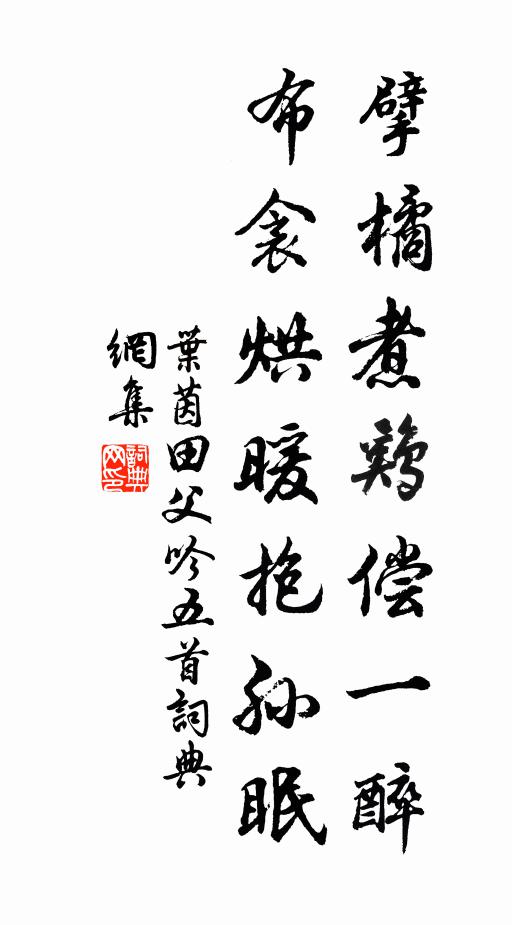 擘橘煮鷄偿一醉
布衾烘暖抱孙眠
葉茵田父吟五首詞典
網集
詞典网印